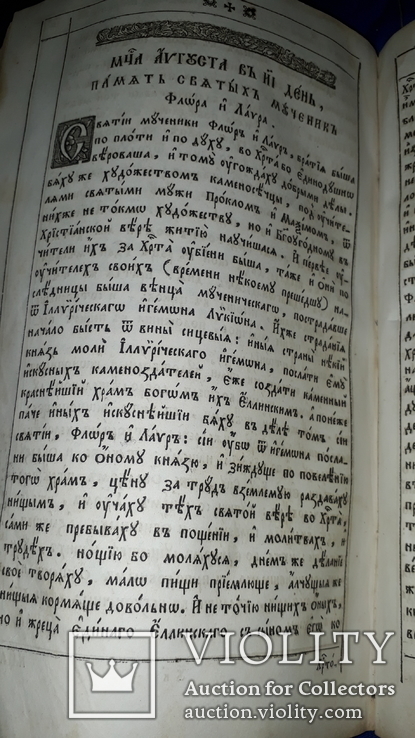 Мц҃а Аѵгѹста въ и҃і день,
память святыхъ мѹченикъ
Флѡра и Лаѵра.
Святіи мѹченики Флѡръ и Лаѵръ, братія быша
по плоти и по дѹхѹ, во Хр҃та бо единодѹшнѡ
вѣроваша, и томѹ ѹгождахѹ добрыми дѣлы.
бяхѹ же хѹдожествомъ каменосѣчцы, под ѹчите-
лями святыми мѹжи Прокломъ и Маѯімомъ, ѿ
нихже не токмѡ хѹдожествѹ, но и Бг҃оѹгодномѹ въ
Хрістіанской вѣрѣ житію наѹчишася. И первѣе ѹ-
чители ихъ за Хр҃та ѹбіени быша, таже и они по
ѹчителехъ своихъ (времени нѣкоемѹ прешедшѹ) на-
слѣдницы быша вѣнца мѹченическагѡ, пострадавше
ѿ Іллѵріческагѡ игемѡна Лѵкіѡна. Ихже страданія
начало бысть ѿ вины сицевыя: иныя страны нѣкій
князь моли Іллѵріческаго игемѡна, послати емѹ
искѹсныхъ каменоздателей, еже создати каменный
краснѣйшій храмъ богѡмъ ихъ Еллинскимъ. А понеже
паче иныхъ искѹснѣйшіи бяхѹ въ дѣлѣ томъ сіи
святіи, Флѡръ и Лаѵръ: сіи ѹбѡ ѿ игемона посла-
ни быша ко ѻномѹ князю, и зиждѹще по повелѣнію
тогѡ храмъ, цѣнѹ за трѹдъ вземлемѹю раздаваху
нищымъ, и ѹчахѹ тѣхъ святой вѣрѣ во Хр҃та,
сами же пребывахѹ въ пощеніи, и молитвахъ, и
трѹдѣхъ. нощію бо моляхѹся, днемъ же дѣланіе
свое творяхѹ, малѡ пищи пріемлюще, алчущыя же
нищыя кормяще довольнѡ. И не точію нищихъ ѻныхъ,
но и жреца единаго Еллинскаго съ сыномъ егѡ ко
VIOLITY
Auction for Collectors
auction.violity.com